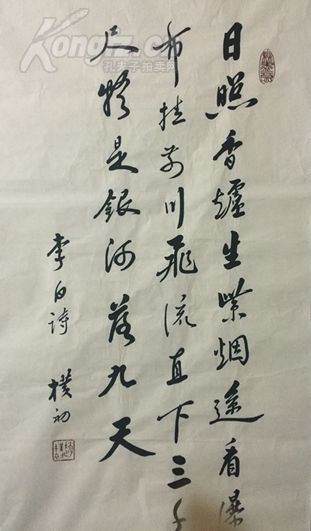 Kongfz.cn
孔夫子拍卖网
日照香爐生紫烟遥看瀑
布挂前川飛流直下三千
尺疑是銀河落九天
李白詩 樸初